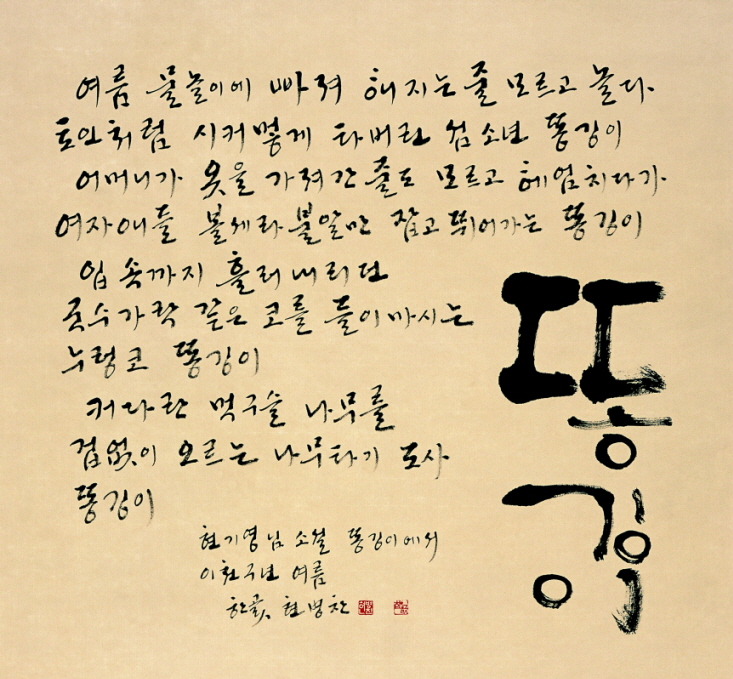 여름 물놀이에 빠져 해지는 줄 모르고 놀다.
토인처럼 시커멓게 타버린 섬 소년 똥깅이
어머니가 옷을 가져간 줄도 모르고 헤엄치다가
여자애들 볼세라 불알만 잡고 뛰어가는 똥깅이
입 속까지 흘러내리던
국수가락 같은 코를 들이마시는
누렁코 똥깅이
커다란 먹구슬 나무를
겁없이 오르는 나무타기 도사
똥깅이
똥깅이
현기영님 소설 똥깅이에서
이천구년 여름
한곬 현병찬